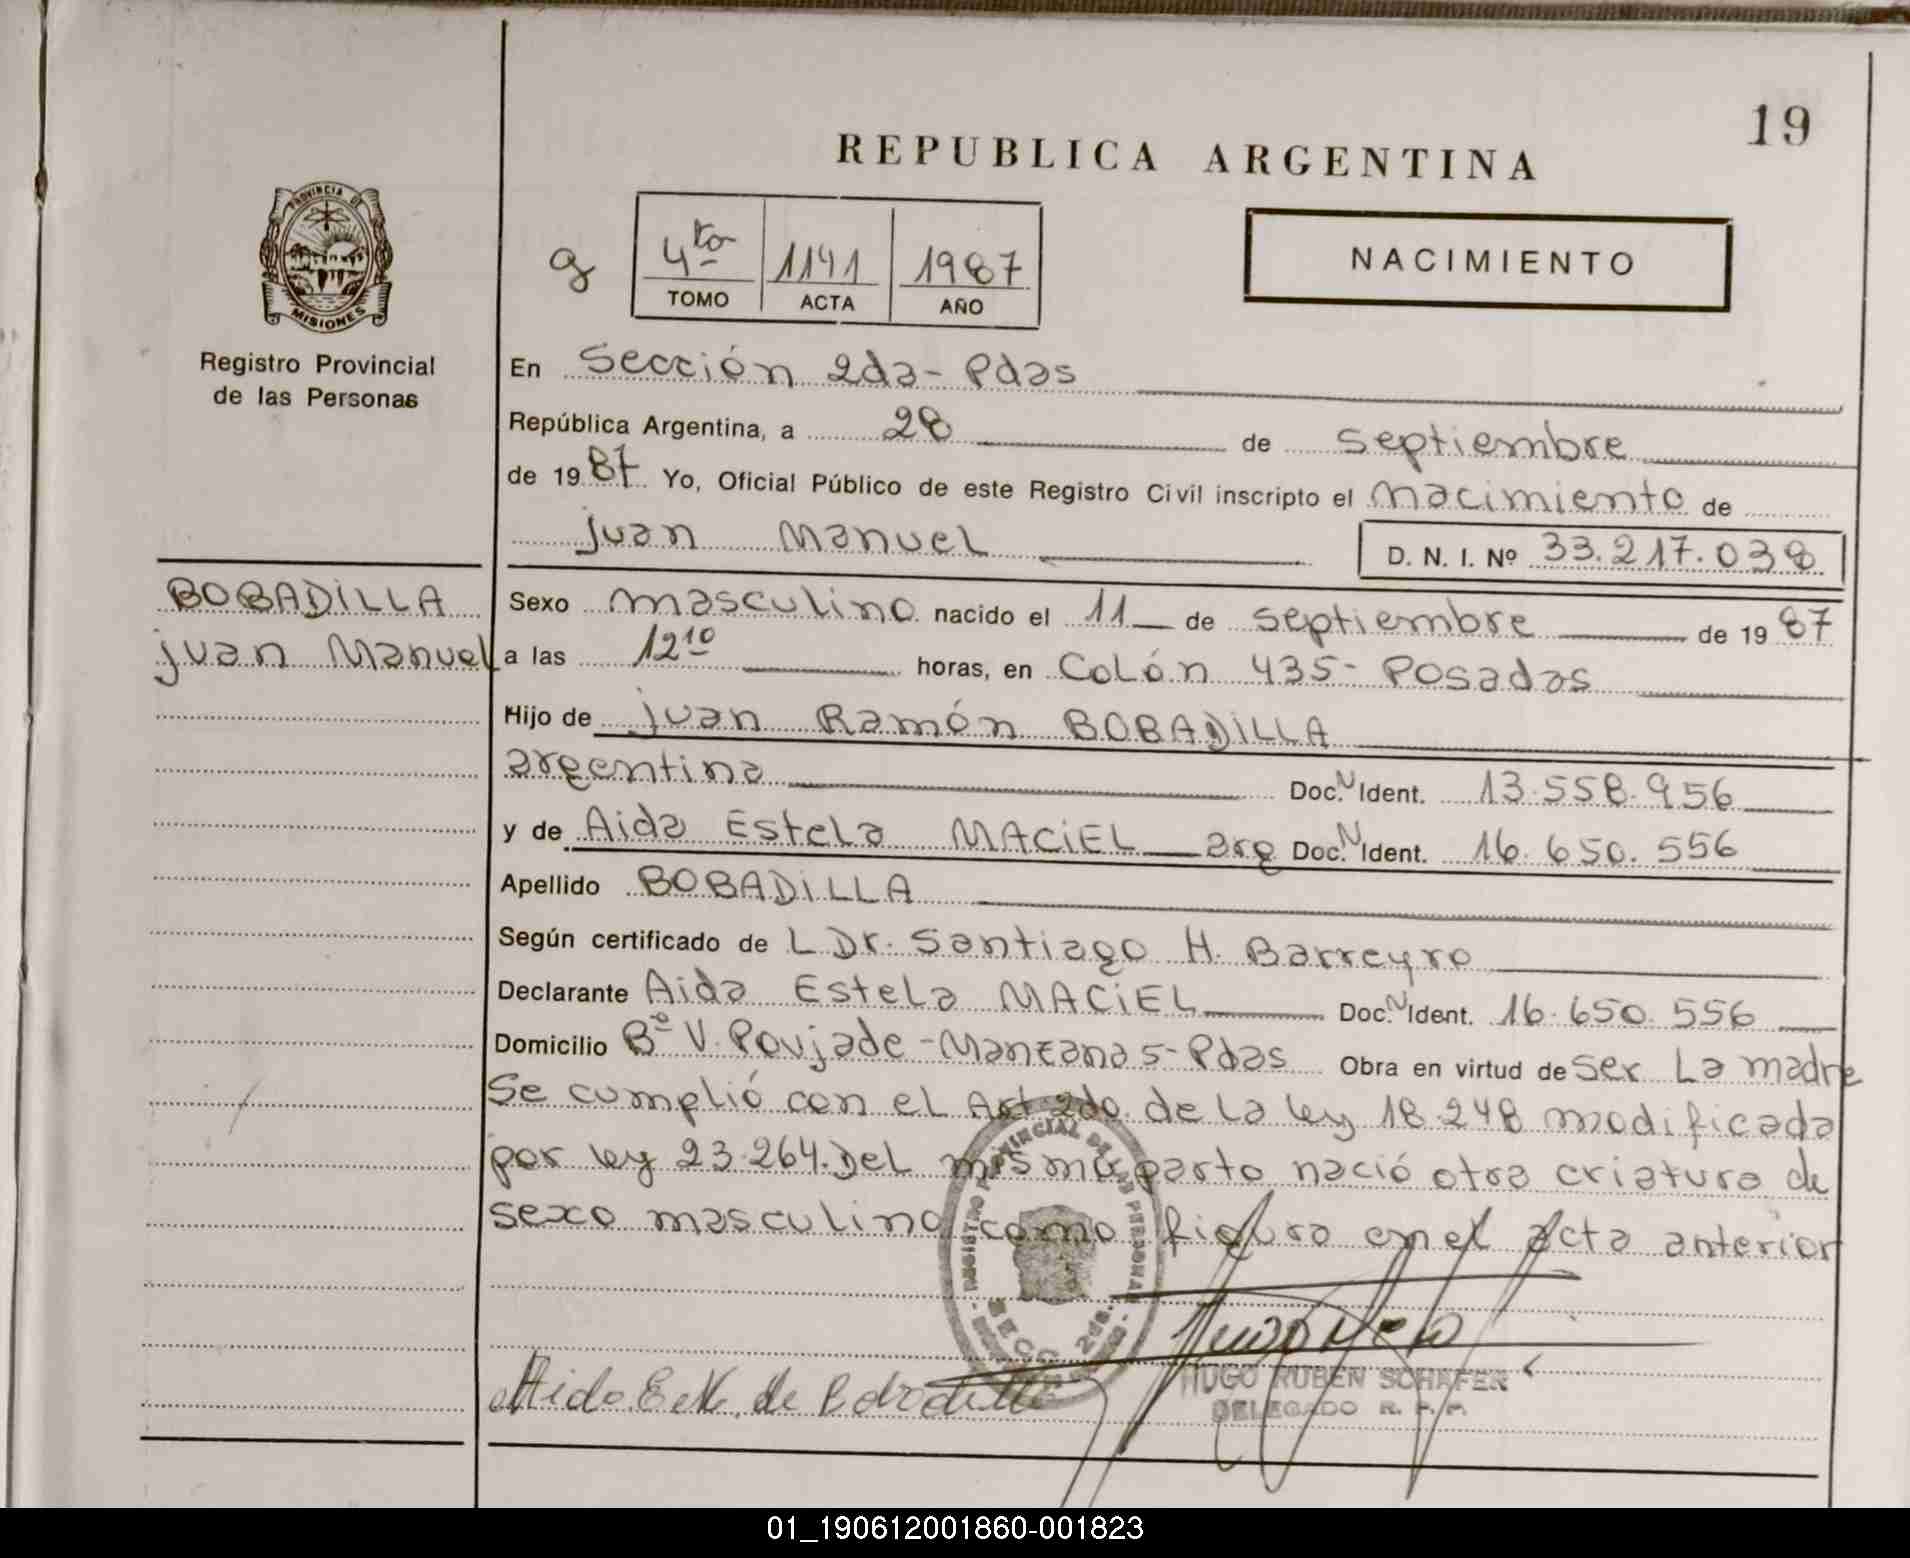 19
REPUBLICA ARGENTINA
PROVINCIA DE
MISIONES
Registro Provincial
de las Personas
g
4to 1141 1987
TOMO ACTA AÑO
NACIMIENTO
En Sección 2da - Pdas
República Argentina, a 28 de septiembre
de 1987 Yo, Oficial Público de este Registro Civil inscripto el nacimiento de
Juan Manuel D. N. I. Nº 33.217.038
BOBADILLA
Juan Manuel
Sexo masculino nacido el 11 de septiembre de 1987
a las 12 10 horas, en Colón 435 - Posadas
Hijo de Juan Ramón BOBADILLA
argentina Doc. N Ident. 13.558.956
y de Aida Estela MACIEL arg Doc. N Ident. 16.650.556
Apellido BOBADILLA
Según certificado de L Dr. Santiago H. Barreyro
Declarante Aida Estela MACIEL Doc. N Ident. 16.650.556
Domicilio Bº V. Poujade - Manzana 5 - Pdas Obra en virtud de ser La madre
Se cumplió con el Art 2do. de la ley 18.248 modificada
por ley 23.264. Del mismo parto nació otra criatura de
sexo masculino como figura en el acta anterior
REGISTRO PROVINCIAL DE LAS PERSONAS
SECC. 2da.
HUGO RUBEN SCHAFER
DELEGADO R. P. P.
Aida E. M. de Bobadilla
01_190612001860-001823